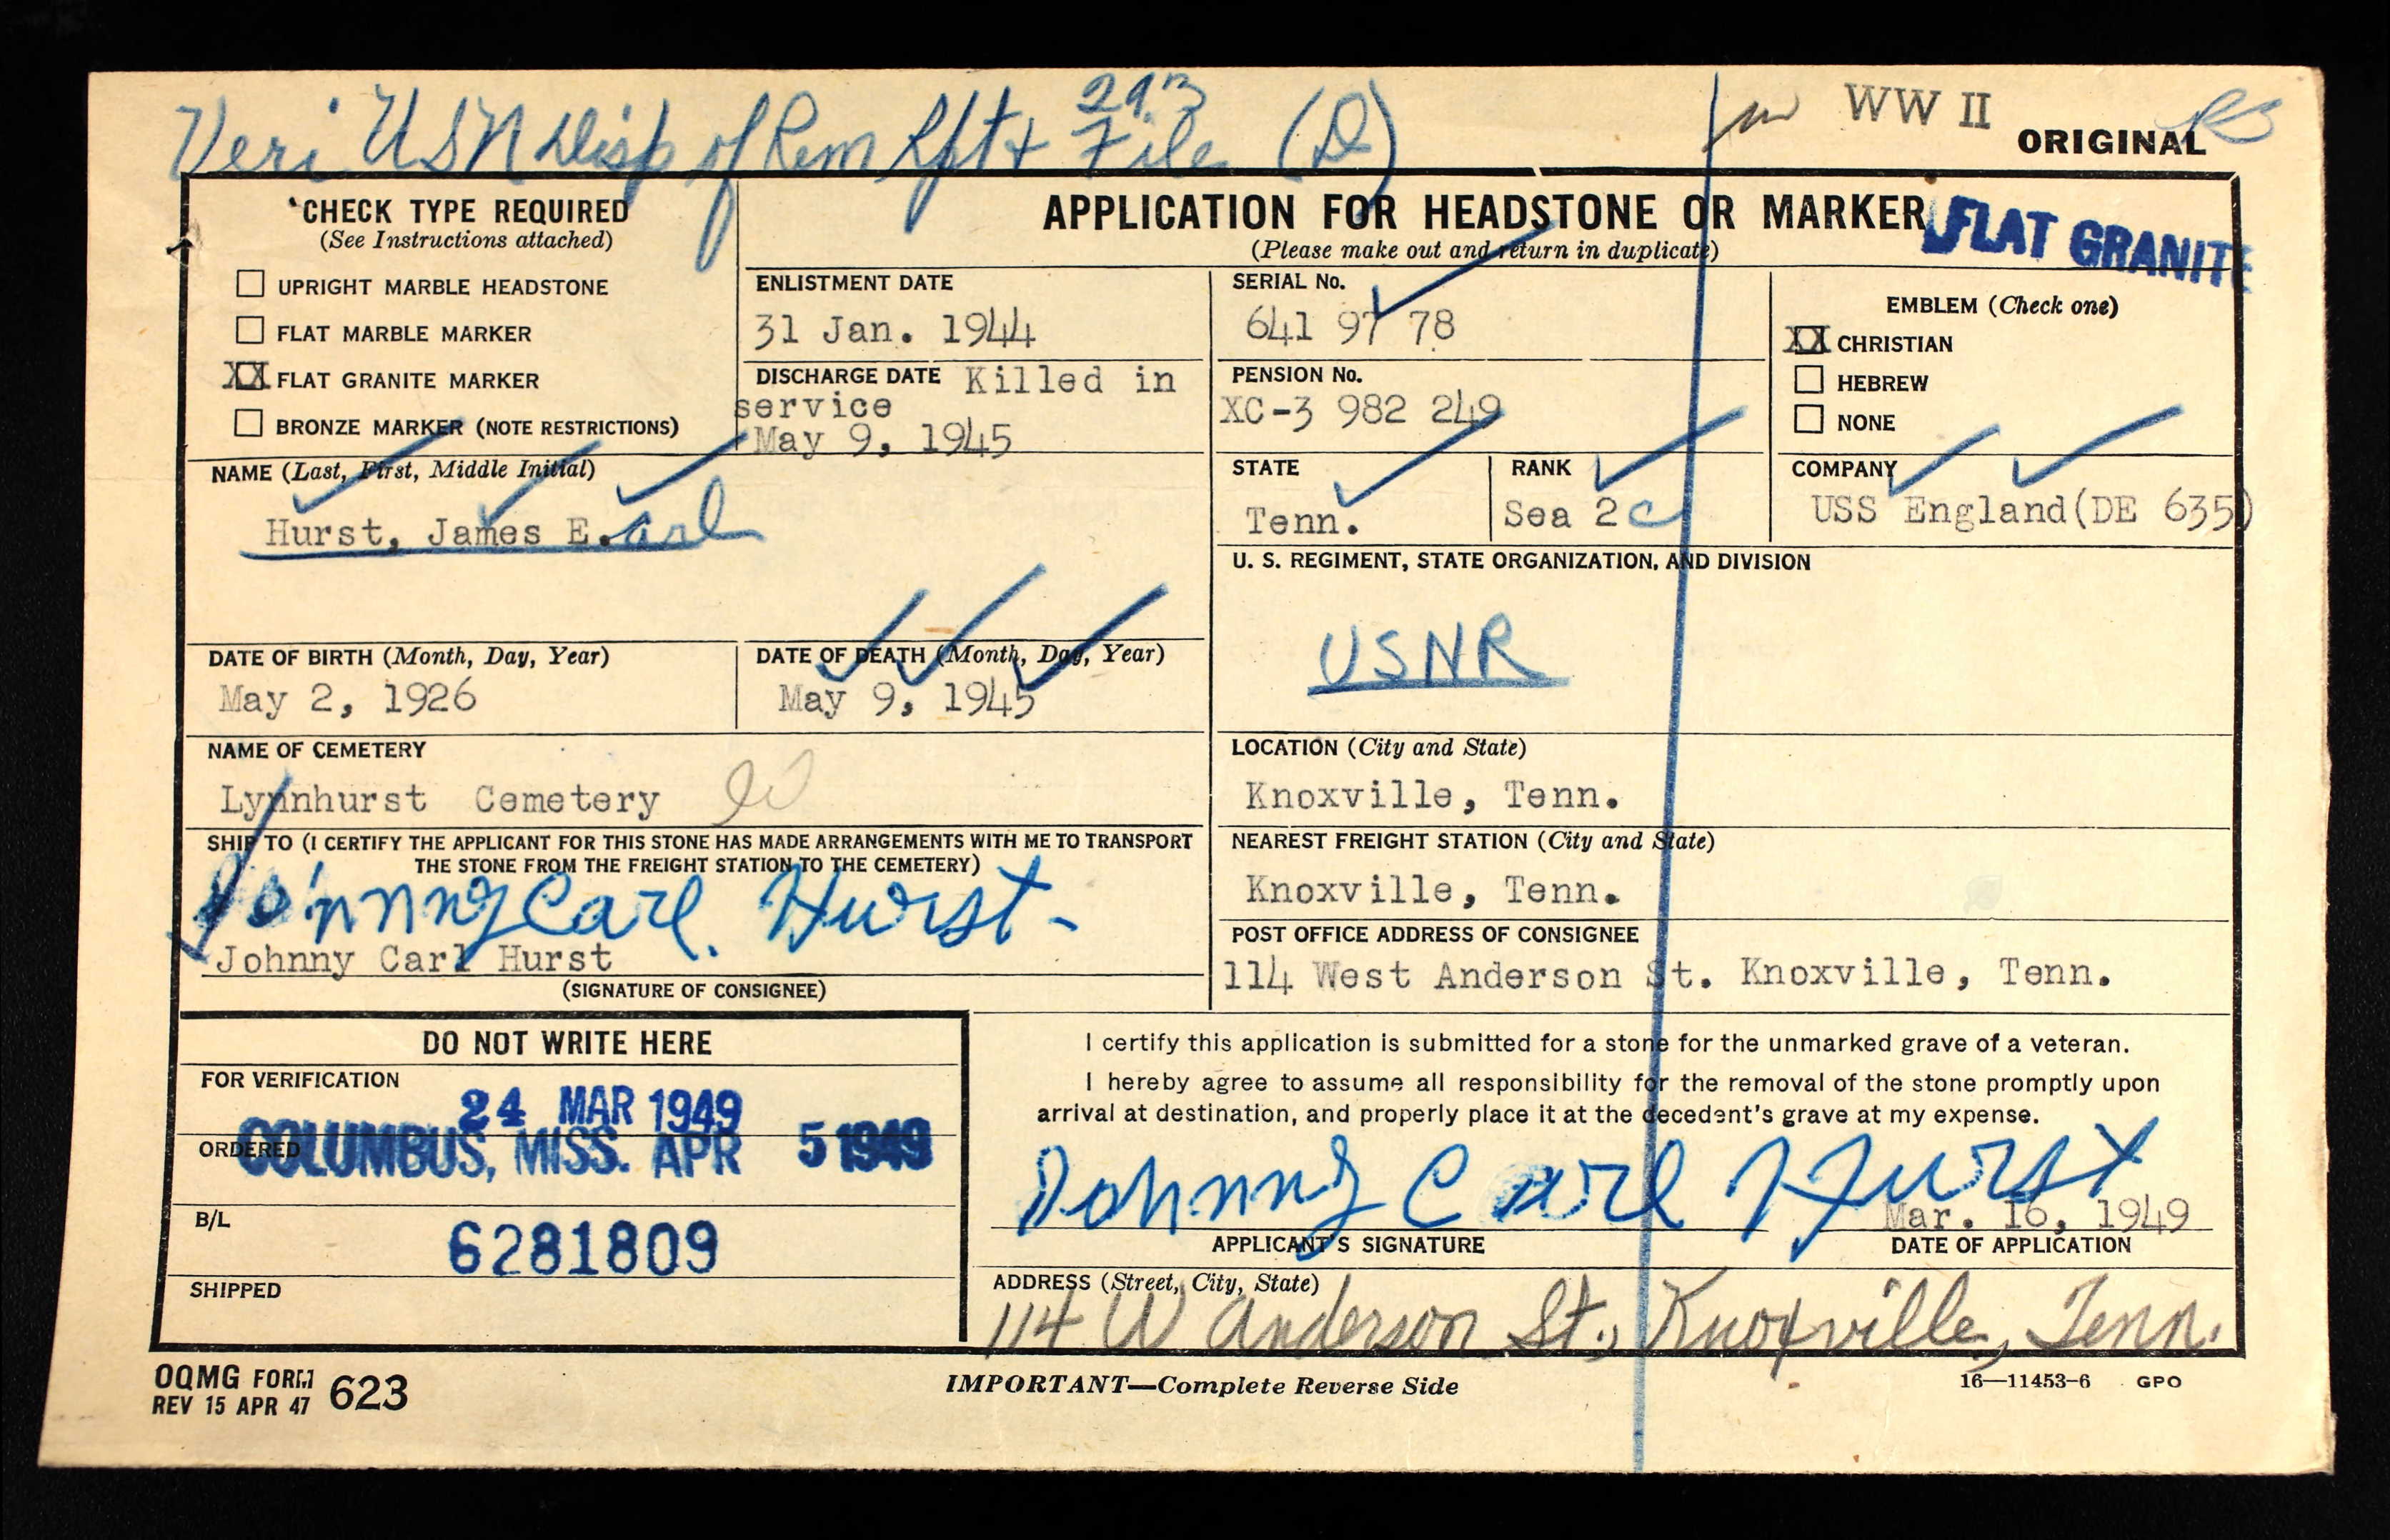 Veri USN Disp of Rem Rpt + 293 File (D)
WW II
ORIGINAL
CHECK TYPE REQUIRED
(See Instructions attached)
UPRIGHT MARBLE HEADSTONE
FLAT MARBLE MARKER
XX FLAT GRANITE MARKER
BRONZE MARKER (NOTE RESTRICTIONS)
APPLICATION FOR HEADSTONE OR MARKER
(Please make out and return in duplicate)
FLAT GRANITE
ENLISTMENT DATE
31 Jan. 1944
DISCHARGE DATE Killed in
service
May 9, 1945
SERIAL No.
641 97 78
PENSION No.
XC-3 982 249
EMBLEM (Check one)
XX CHRISTIAN
HEBREW
NONE
NAME (Last, First, Middle Initial)
Hurst, James E.arl
STATE
Tenn.
RANK
Sea 2c
COMPANY
USS England(DE 635)
U. S. REGIMENT, STATE ORGANIZATION, AND DIVISION
USNR
DATE OF BIRTH (Month, Day, Year)
May 2, 1926
DATE OF DEATH (Month, Day, Year)
May 9, 1945
NAME OF CEMETERY
Lynnhurst Cemetery
LOCATION (City and State)
Knoxville, Tenn.
SHIP TO (I CERTIFY THE APPLICANT FOR THIS STONE HAS MADE ARRANGEMENTS WITH ME TO TRANSPORT
THE STONE FROM THE FREIGHT STATION TO THE CEMETERY)
Johnny Carl. Hurst-
Johnny Carl Hurst
(SIGNATURE OF CONSIGNEE)
NEAREST FREIGHT STATION (City and State)
Knoxville, Tenn.
POST OFFICE ADDRESS OF CONSIGNEE
114 West Anderson St. Knoxville, Tenn.
DO NOT WRITE HERE
FOR VERIFICATION
24 MAR 1949
ORDERED
COLUMBUS, MISS. APR 5 1949
B/L
6281809
SHIPPED
I certify this application is submitted for a stone for the unmarked grave of a veteran.
I hereby agree to assume all responsibility for the removal of the stone promptly upon
arrival at destination, and properly place it at the decedent's grave at my expense.
Johnny Carl Hurst
Mar. 16, 1949
APPLICANT'S SIGNATURE
DATE OF APPLICATION
ADDRESS (Street, City, State)
114 W Anderson St., Knoxville, Tenn.
OQMG FORM 623
REV 15 APR 47
IMPORTANT—Complete Reverse Side
16—11453-6 GPO